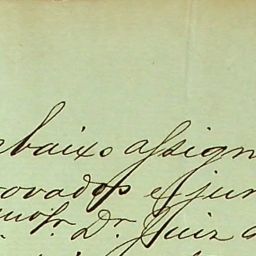 ebaixo assign
ovados e jur
mo Sr. Dr. Juiz d